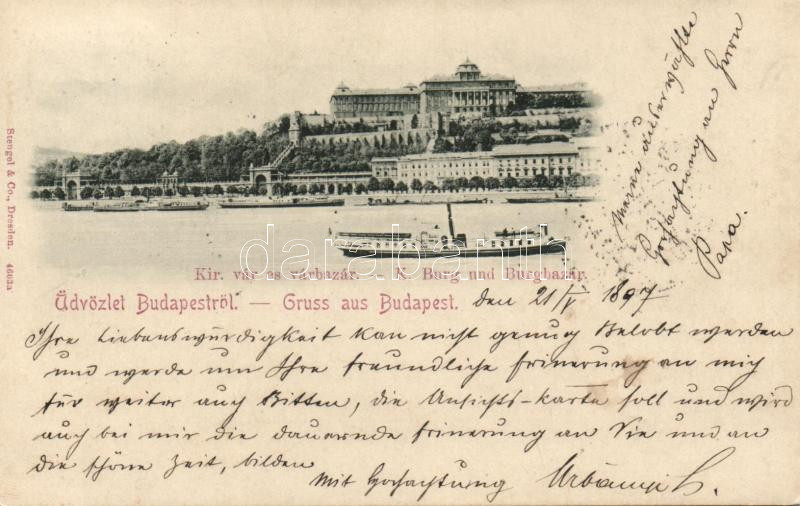 Meine auserwählte
Hochachtung an Herrn
Papa.
Stengel & Co., Dresden. 4663a
darabanth.com
Kir. vár es várbazár. — K. Burg und Burgbazár.
Üdvözlet Budapestről. — Gruss aus Budapest. den 21/V 1897
Ihre Liebenswürdigkeit kan nicht genug Belobt werden
und werde um Ihre freundliche Erinerung an mich
für weiter auch Bitten, die Ansichts-karte soll und wird
auch bei mir die dauernde Erinerung an Sie und an
die schöne Zeit, bilden
Mit Hochachtung